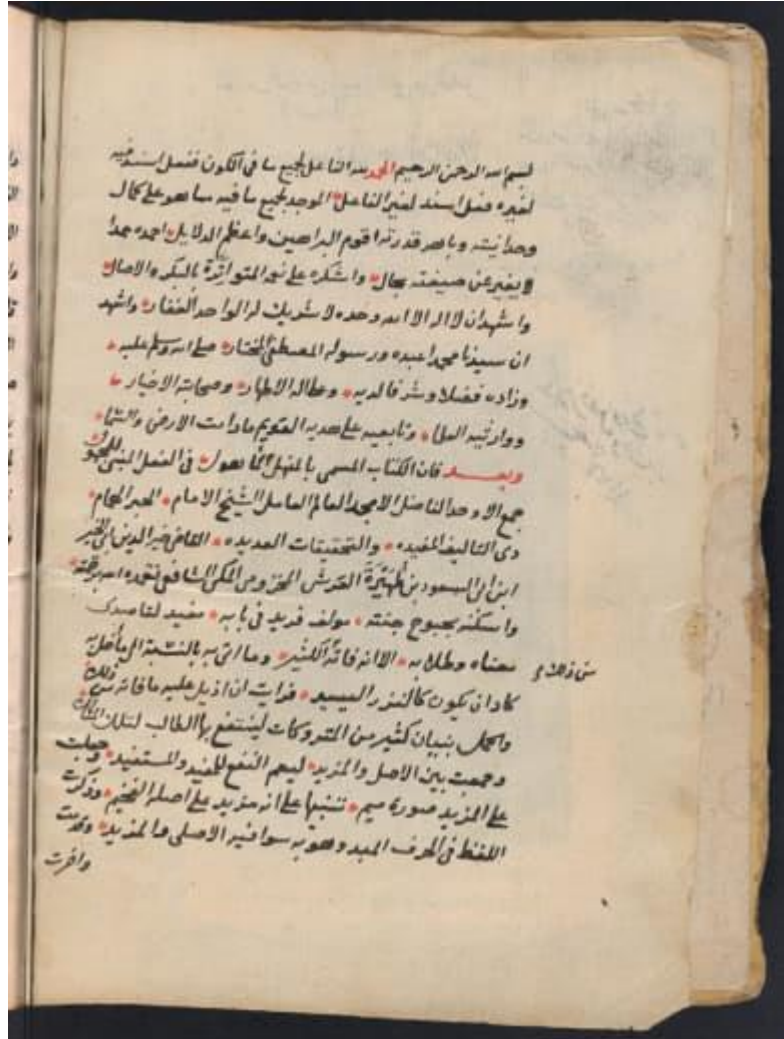 بسم الله الرحمن الرحيم الحمد لله الفاعل لجميع ما في الكون ففعل اسند فيه
لغيره فعل اسند لغير الفاعل الموجد لجميع ما فيه مما هو على كمال
وحدانيته وباهر قدرته اقوم البراهين واعظم الدلايل احمده حمدا
لا يغير عن صيغته بحال واشكره على نعمه المتواترة بالبكر والاصال
واشهد ان لا اله الا الله وحده لا شريك له الواحد الغفار واشهد
ان سيدنا محمدا عبده ورسوله المصطفى المختار صلى الله وسلم عليه
وزاده فضلا وشرفا لديه وعلى اله الاطهار وصحابته الاخيار
ووارثيه العلما وتابعيه على هديه القويم ما دامت الارض والسما
وبعد فان الكتاب المسمى بالمنهل المأهول في الفعل المبني للمجهول
جمع الاوحد الفاضل الامجد العالم العامل الشيخ الامام الحبر الهمام
ذي التاليف المفيده والتحقيقات العديده القاضي خير الدين ابي الخير
ابن ابي السعود بن ظهيرة القرشي المخزومي المكي الشافعي تغمده الله برحمته
واسكنه بحبوح جنته مولف فريد في بابه مفيد لقاصدي
معناه وطلابه الا انه فاته الكثير وما اتى به بالنسبة الى ما اخل به
كاد ان يكون كالنزر اليسير فرايت ان اذيل عليه ما فاته من ذلك
واكمل بتبيان كثير من المتروكات لينتفع بها الطالب لتلك المسالك
وجمعت بين الاصل والمزيد ليعم النفع للمفيد والمستفيد وجعلت
على المزيد صورة ميم تنبيها على انه مزيد على اصله الفخيم وذكرت
اللفظ في الحرف المبدوء به سوا فيه الاصلي والمزيد
وافرت